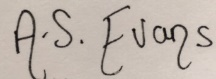 A.S. Evans